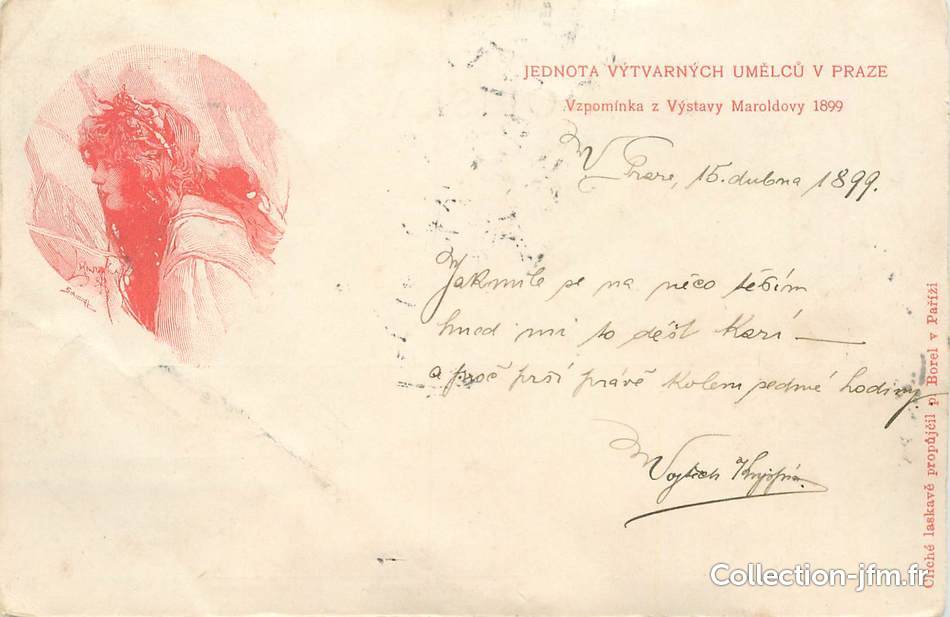 JEDNOTA VÝTVARNÝCH UMĚLCŮ V PRAZE
Vzpomínka z Výstavy Maroldovy 1899
V Praze, 15. dubna 1899.
Jakmile se na něco těším
hned mi to déšť kazí —
a proč prší právě kolem sedmé hodiny.
Vojtěch
Cliché laskavě propůjčil p. Borel v Paříži
Collection-jfm.fr